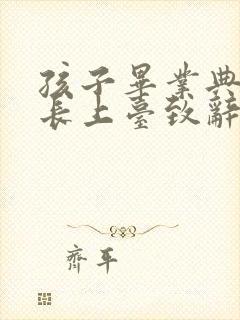 孩子畢業典
長上臺致辭
齊平